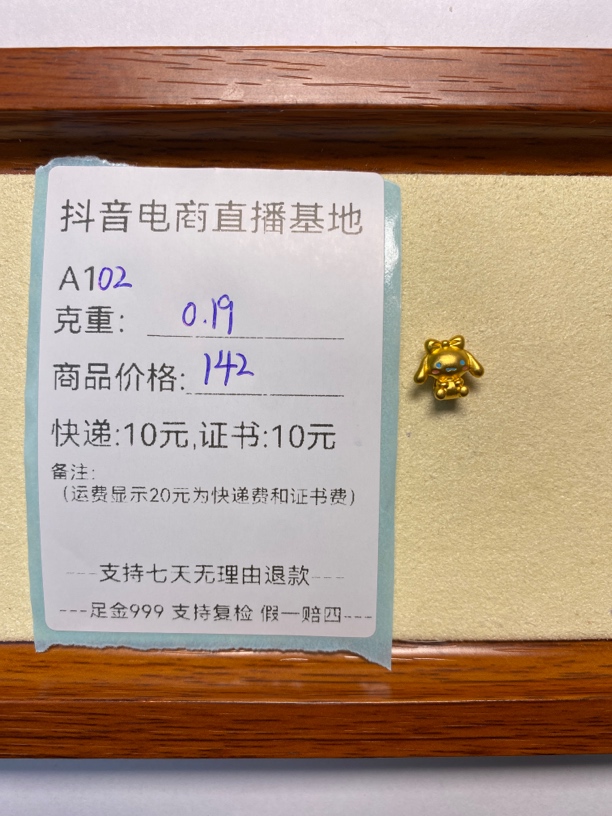 抖音电商直播基地
A102
克重: 0.19
商品价格: 142
快递:10元,证书:10元
备注:
(运费显示20元为快递费和证书费)
---支持七天无理由退款---
---足金999 支持复检 假一赔四---